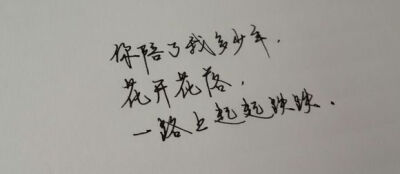 你陪了我多少年,
花开花落,
一路上起起跌跌.